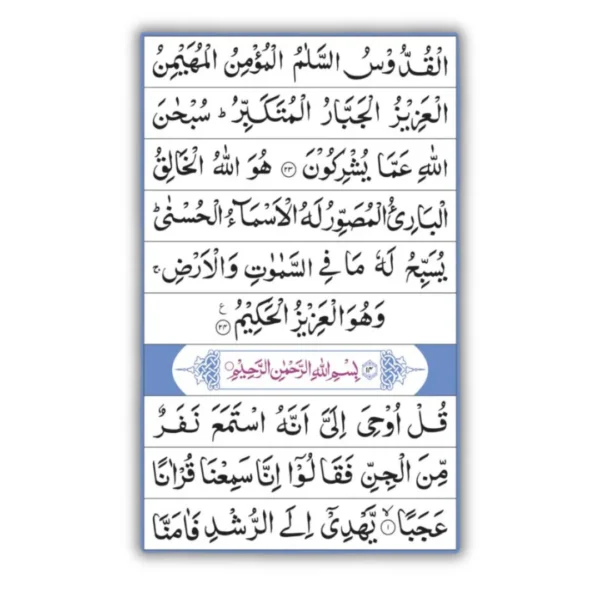 الْقُدُّوْسُ السَّلٰمُ الْمُؤْمِنُ الْمُهَيْمِنُ
الْعَزِيْزُ الْجَبَّارُ الْمُتَكَبِّرُ ؕ سُبْحٰنَ
اللّٰهِ عَمَّا يُشْرِكُوْنَ ۝۲۳ هُوَ اللّٰهُ الْخَالِقُ
الْبَارِئُ الْمُصَوِّرُ لَهُ الْاَسْمَآءُ الْحُسْنٰى ؕ
يُسَبِّحُ لَهٗ مَا فِي السَّمٰوٰتِ وَالْاَرْضِ ۚ
وَهُوَ الْعَزِيْزُ الْحَكِيْمُ ۝۲۴ ع
۱۳ بِسْمِ اللّٰهِ الرَّحْمٰنِ الرَّحِيْمِ ۝
قُلْ اُوْحِيَ اِلَيَّ اَنَّهُ اسْتَمَعَ نَفَرٌ
مِّنَ الْجِنِّ فَقَالُوْٓا اِنَّا سَمِعْنَا قُرْاٰنًا
عَجَبًا ۝۱ۙ يَّهْدِيْٓ اِلَى الرُّشْدِ فَاٰمَنَّا